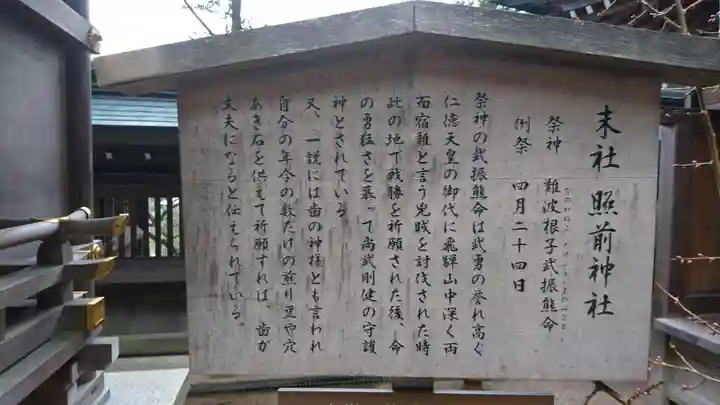 末社 照前神社
祭神 難波根子武振熊命
なにわねこたけふるくまのみこと
例祭 四月二十四日
祭神の武振熊命は武勇の誉れ高ぐ
仁徳天皇の御代に飛騨山中深く両
面宿儺と言う兇賊を討伐された時
此の地で戦勝を祈願された後、命
の勇猛さを慕って尚武剛健の守護
神とされている
又、一説には歯の神様とも言われ
自分の年令の数だけの煎り豆や穴
あき石を供えて祈願すれば、歯が
丈夫になると伝えられている。